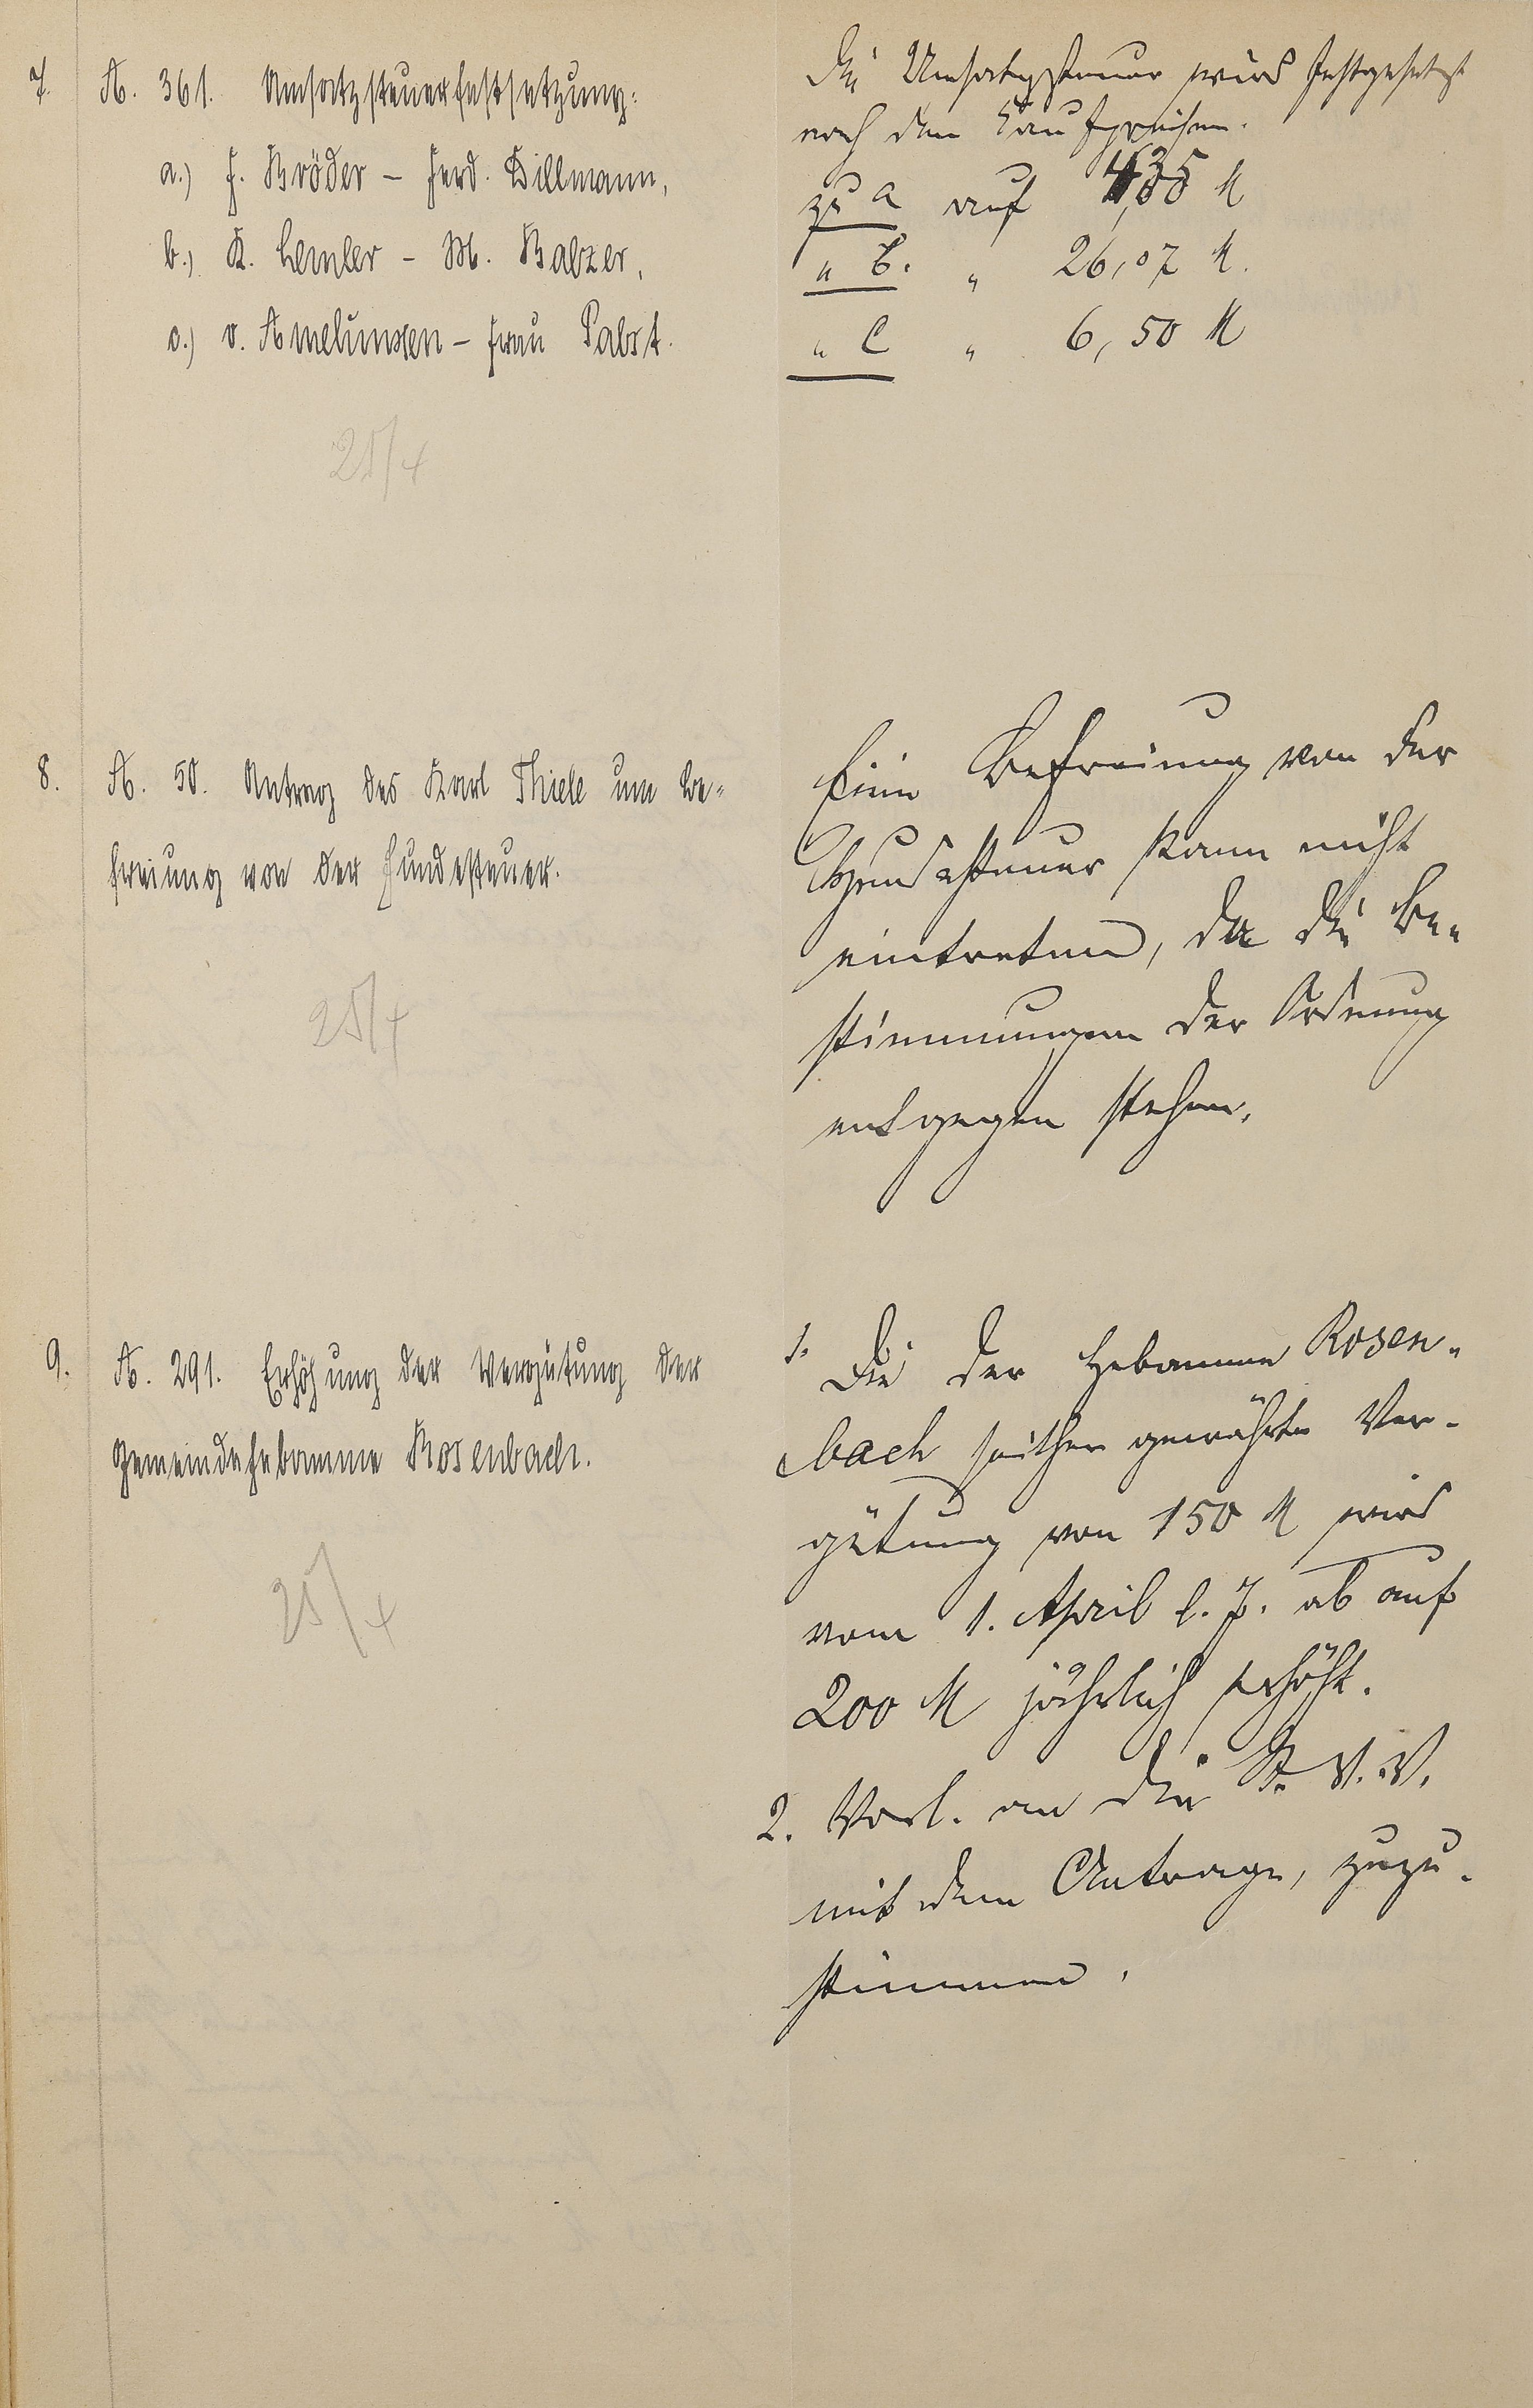 7. A. 361. Umsatzsteuerfestsetzung:
a.) H. Bröder - Ferd. Dillmann,
b.) K. Lemler - M. Balzer,
c.) v. Amelunxen - Frau Pabst.
25/4
Die Umsatzsteuer wird festgesetzt
nach den Kaufpreisen.
zu a auf M
" b. " 26,07 M.
" c " 6,50 M
8. A. 50. Antrag des Karl Thiele um Be-
freiung von der Hundesteuer.
25/4
Eine Befreiung von der
Hundesteuer kann nicht
eintreten, da die Be-
stimmungen der Ordnung
entgegen stehen.
9. A. 291. Erhöhung der Vergütung der
Gemeindehebamme Rosenbach.
25/4
1. Die der Hebamme Rosen-
bach seither gewährte Ver-
gütung von 150 M wird
vom 1. April l. J. ab auf
200 M jährlich erhöht.
2. Vorl. an die St. V. V.
mit dem Antrage, zuzu-
stimmen.